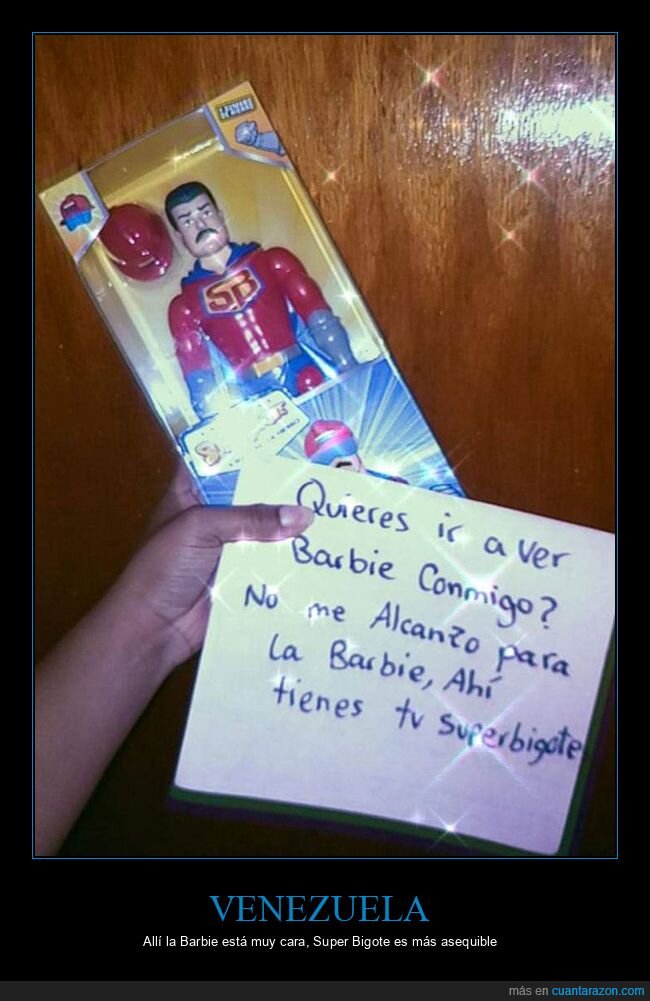 SB
Quieres ir a ver
Barbie Conmigo?
No me Alcanzo para
la Barbie, Ahí
tienes tu superbigote
VENEZUELA
Allí la Barbie está muy cara, Super Bigote es más asequible
más en cuantarazon.com